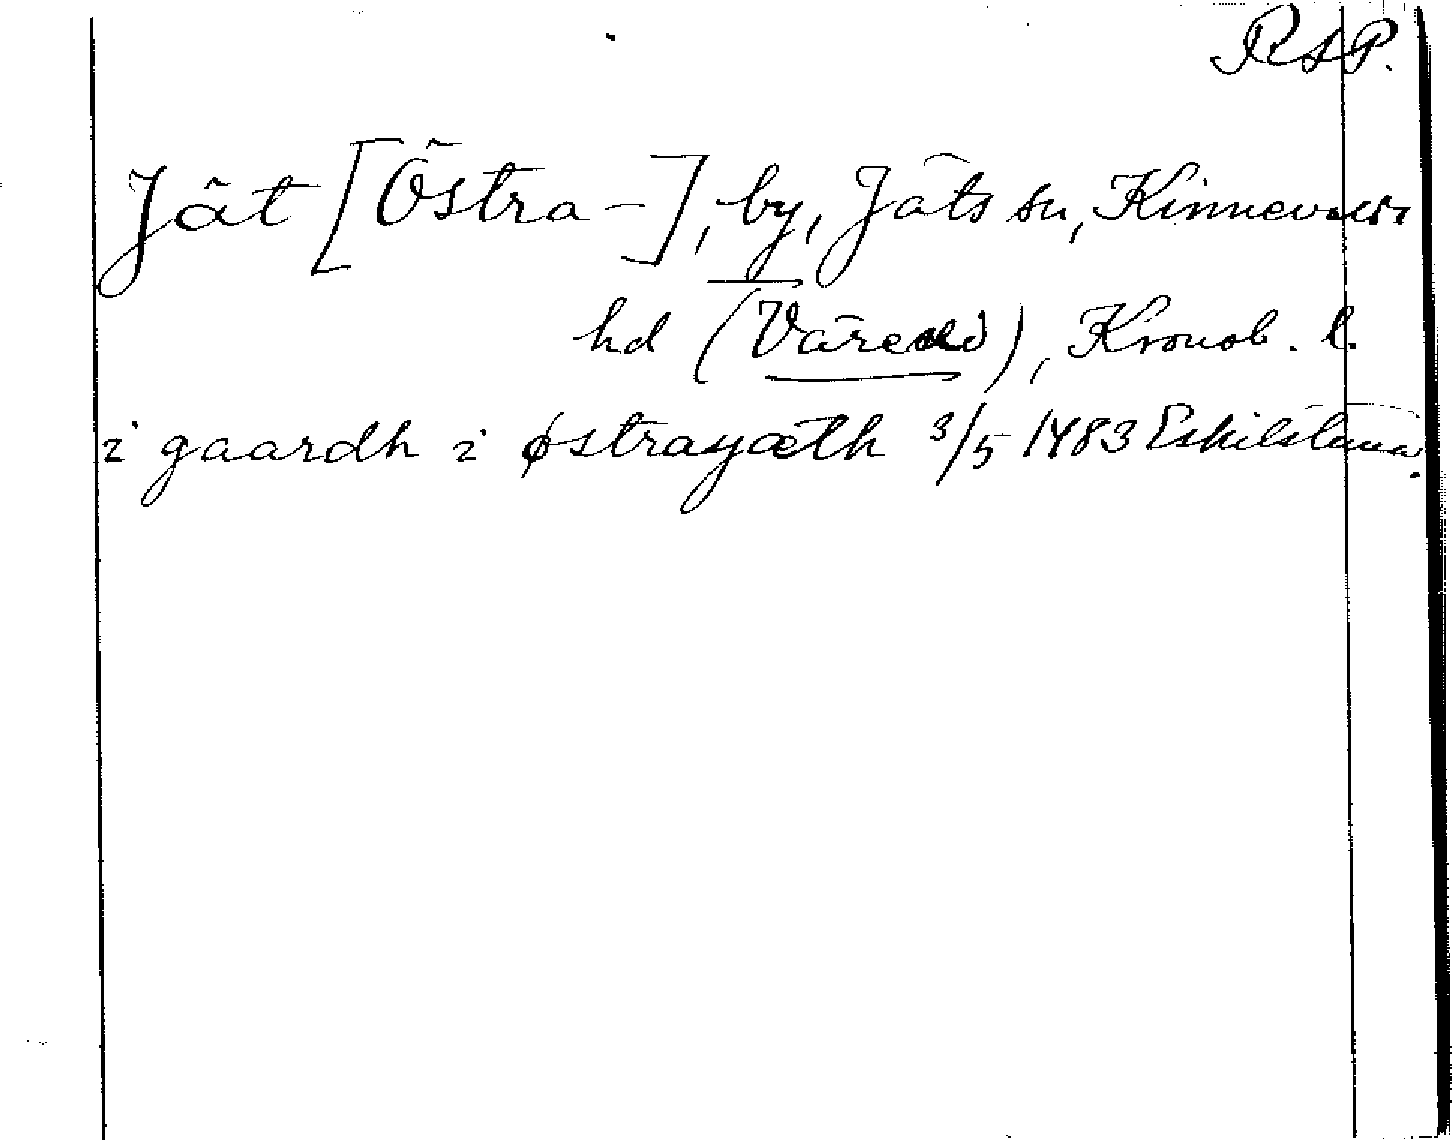 RAP.
Jät [Östra-], by, Jäts sn, Kinnevalds
hd (Värend), Kronob. l.
i gaardh i østrayæth 3/5 1483 Eskilstuna.